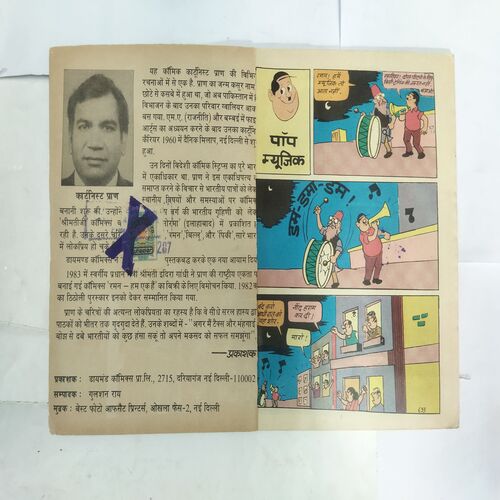 यह कॉमिक कार्टूनिस्ट प्राण की
रचनाओं में से एक है. प्राण का जन्म कसूर
छोटे से कसबे में हुआ था, जो अब पाकिस्तान में
विभाजन के बाद उनका परिवार ग्वालियर
बस गया. एम.ए. (राजनीति) और बम्बई में
आर्ट्स का अध्ययन करने के बाद उनका
कैरियर 1960 में दैनिक मिलाप, नई दिल्ली से
हुआ.
उन दिनों विदेशी कॉमिक स्ट्रिप्स का पूरे
एकाधिकार था. प्राण ने इस एकाधिपत्य
समाप्त करने के विचार से भारतीय पात्रों को
स्थानीय विषयों और समस्याओं पर कॉमिक्स
कार्टूनिस्ट प्राण
बनानी शुरू की
वर्ग की भारतीय गृहिणी को
'श्रीमतीजी' कॉमिक्स
(इलाहाबाद) में छपती
'रमन', 'बिल्लू', और 'पिंकी'
में लोकप्रिय हो
267
डायमण्ड कॉमिक्स
पुस्तकबद्ध करके एक नया आयाम
1983 में स्वर्गीय प्रधान
श्रीमती इंदिरा गांधी ने प्राण की राष्ट्रीय एकता
बनाई गई कॉमिक्स 'रमन - हम एक हैं' का बिक्री के लिए विमोचन किया. 1982
का ठिठोली पुरस्कार इनको देकर सम्मानित किया गया.
प्राण के चरित्रों की अत्यन्त लोकप्रियता का रहस्य है कि वे सीधे सरल हास्य
पाठकों को भीतर तक गुदगुदा देते हैं. उनके शब्दों में - "अगर मैं टैक्स और महंगाई
बोझ से दबे भारतीयों को कुछ हंसा सकूं तो अपने मकसद को सफल समझूंगा
—प्रकाशक
प्रकाशक : डायमंड कॉमिक्स प्रा.लि., 2715, दरियागंज नई दिल्ली-110002
सम्पादक : गुलशन राय
मुद्रक : बेस्ट फोटो आफसैट प्रिन्टर्स, ओखला फेस-2, नई दिल्ली
पॉप
म्यूज़िक
रमन! हमें
म्यूजिक तो
आता नहीं.
डम-डमा-डम!
नींद हराम
कर दी!
मारो!